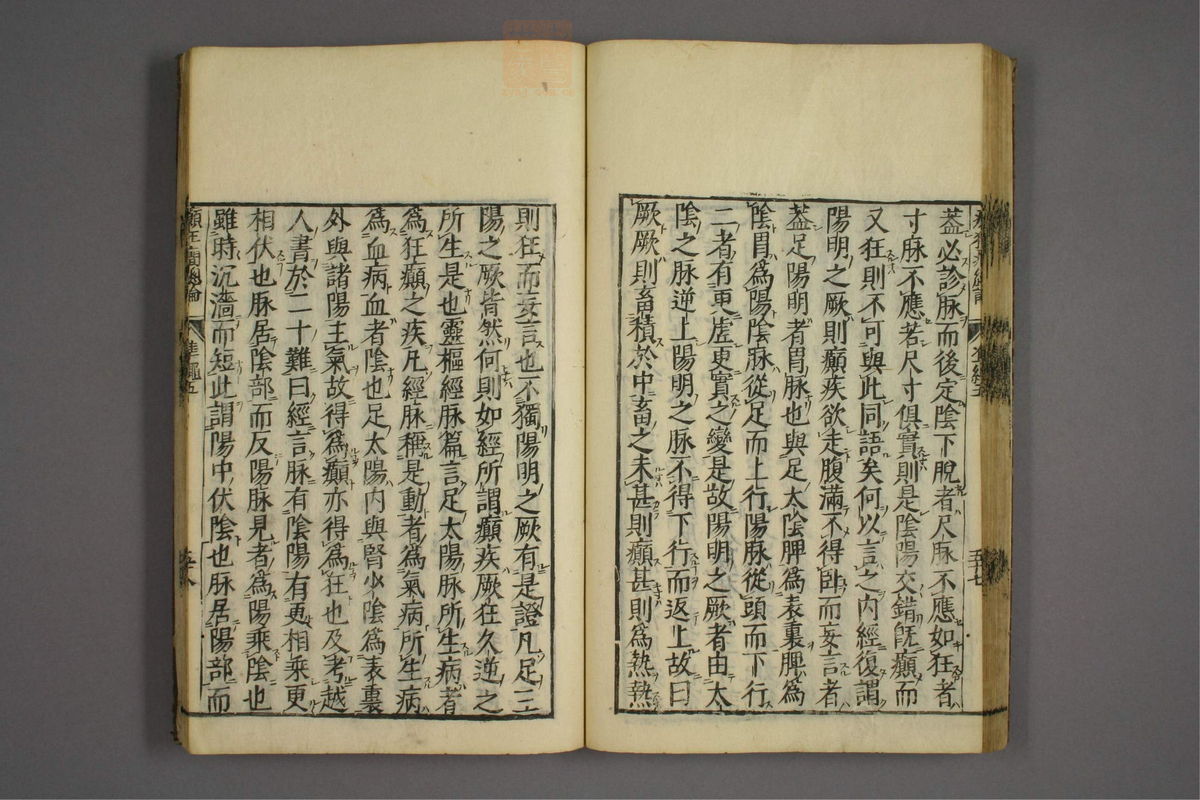 葢必診脉而後定陰下脫者尺脉不應如狂者
寸脉不應若尺寸俱實則是陰陽交錯旣癲而
又狂則不可與此同語矣何以言之內經復謂
陽明之厥則癲疾欲走腹滿不得卧而妄言者
葢足陽明者胃脉也與足太陰脾爲表裏脾爲
陰胃爲陽陰脉從足而上行陽脉從頭而下行
二者有更虛更實之變是故陽明之厥者由太
陰之脉逆上陽明之脉不得下行而返上故曰
厥厥則畜積於中畜之未甚則癲甚則爲熱熱
五十七
則狂而妄言也不獨陽明之厥有是證凡足三
陽之厥皆然何則如經所謂癲疾厥狂久逆之
所生是也靈樞經脉篇言足太陽脉所生病者
爲狂癲之疾凡經脉稱是動者爲氣病所生病
爲血病血者陰也足太陽內與腎少陰爲表裏
外與諸陽主氣故得爲癲亦得爲狂也及考越
人書於二十難曰經言脉有陰陽有更相乘更
相伏也脉居陰部而反陽脉見者爲陽乘陰也
雖時沉濇而短此謂陽中伏陰也脉居陽部而
五十八